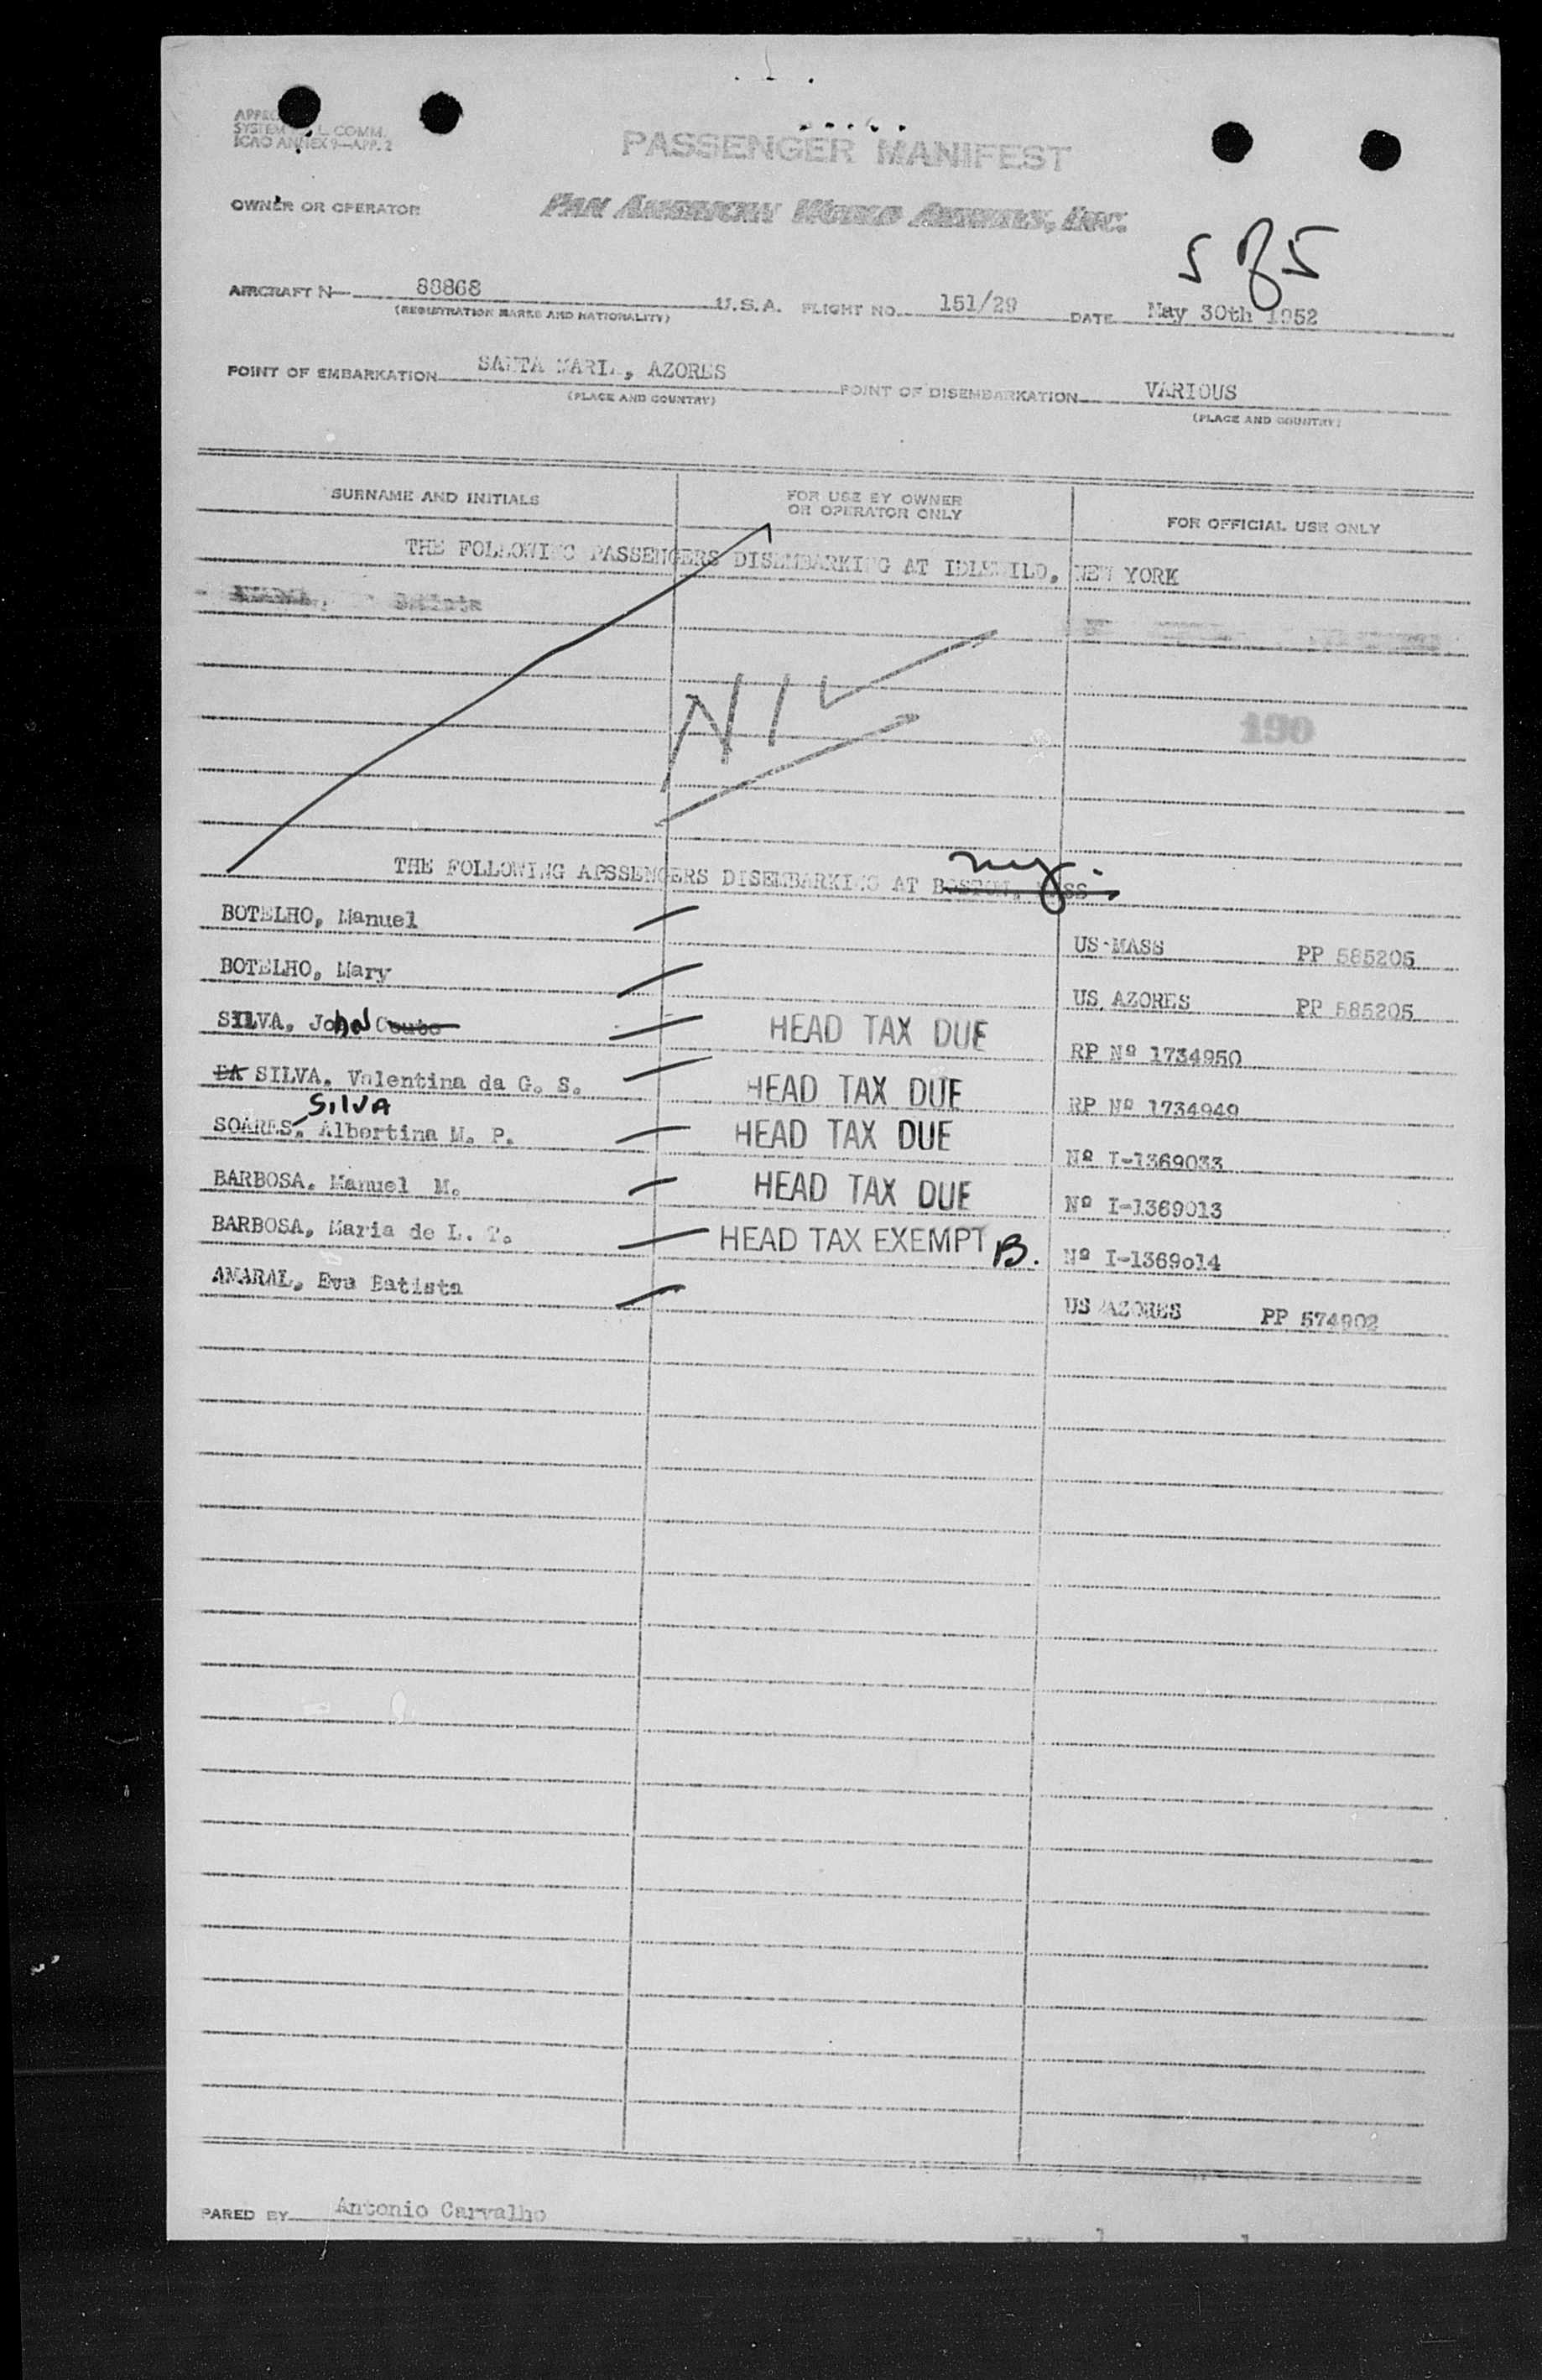 PASSENGER MANIFEST
SYSTEM L. COMM.
ICAO ANNEX 9—APP. 2
OWNER OR OPERATOR PAN AMERICAN WORLD AIRWAYS, INC.
5 of 5
AIRCRAFT N— 88868 U.S.A. FLIGHT NO. 151/29 DATE May 30th 1952
(REGISTRATION MARKS AND NATIONALITY)
POINT OF EMBARKATION SANTA MARIA, AZORES POINT OF DISEMBARKATION VARIOUS
(PLACE AND COUNTRY) (PLACE AND COUNTRY)
SURNAME AND INITIALS FOR USE BY OWNER OR OPERATOR ONLY FOR OFFICIAL USE ONLY
THE FOLLOWING PASSENGERS DISEMBARKING AT IDLEWILD, NEW YORK
Batista
NIL
190
ny.
THE FOLLOWING APSSENGERS DISEMBARKING AT BOSTON, MASS
BOTELHO, Manuel US MASS PP 585205
BOTELHO, Mary US AZORES PP 585205
SILVA, John Couto HEAD TAX DUE RP Nº 1734950
DA SILVA, Valentina da G. S. HEAD TAX DUE RP Nº 1734949
SILVA
SOARES, Albertina M. P. HEAD TAX DUE Nº I-1369033
BARBOSA, Manuel M. HEAD TAX DUE Nº I-1369013
BARBOSA, Maria de L. T. HEAD TAX EXEMPT B. Nº I-1369o14
AMARAL, Eva Batista US AZORES PP 574902
PARED BY Antonio Carvalho